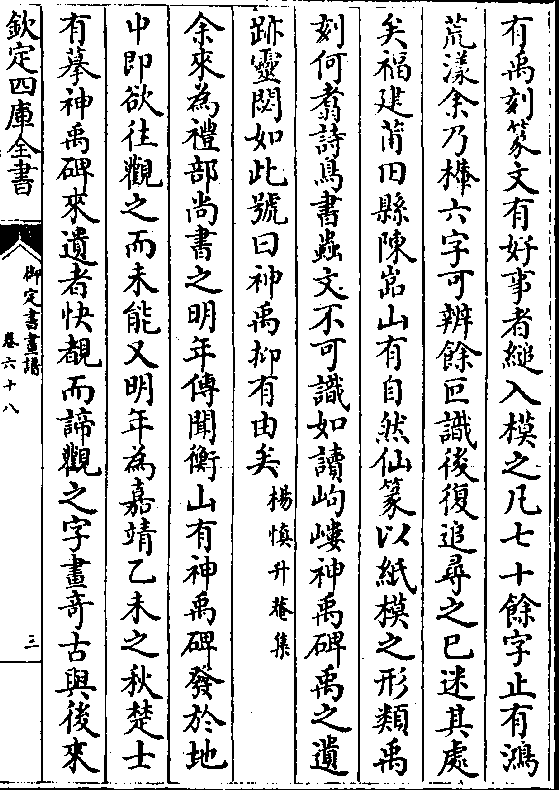 有禹刻篆文有好事者縋入模之凡七十餘字止有鴻
荒漾余乃櫸六字可辨餘叵識後復追尋之已迷其處
矣福建莆田縣陳嵓山有自然仙篆以紙模之形類禹
刻何翥詩鳥書蟲文不可識如讀岣嶁神禹碑禹之遺
跡靈閟如此號曰神禹抑有由矣 楊慎升菴集
余來為禮部尚書之明年傳聞衡山有神禹碑發於地
中即欲往觀之而未能又明年為嘉靖乙未之秋楚士
有摹神禹碑來遺者快覩而諦觀之字畫竒古與後來
欽定四庫全書
御定書畫譜
卷六十八
三